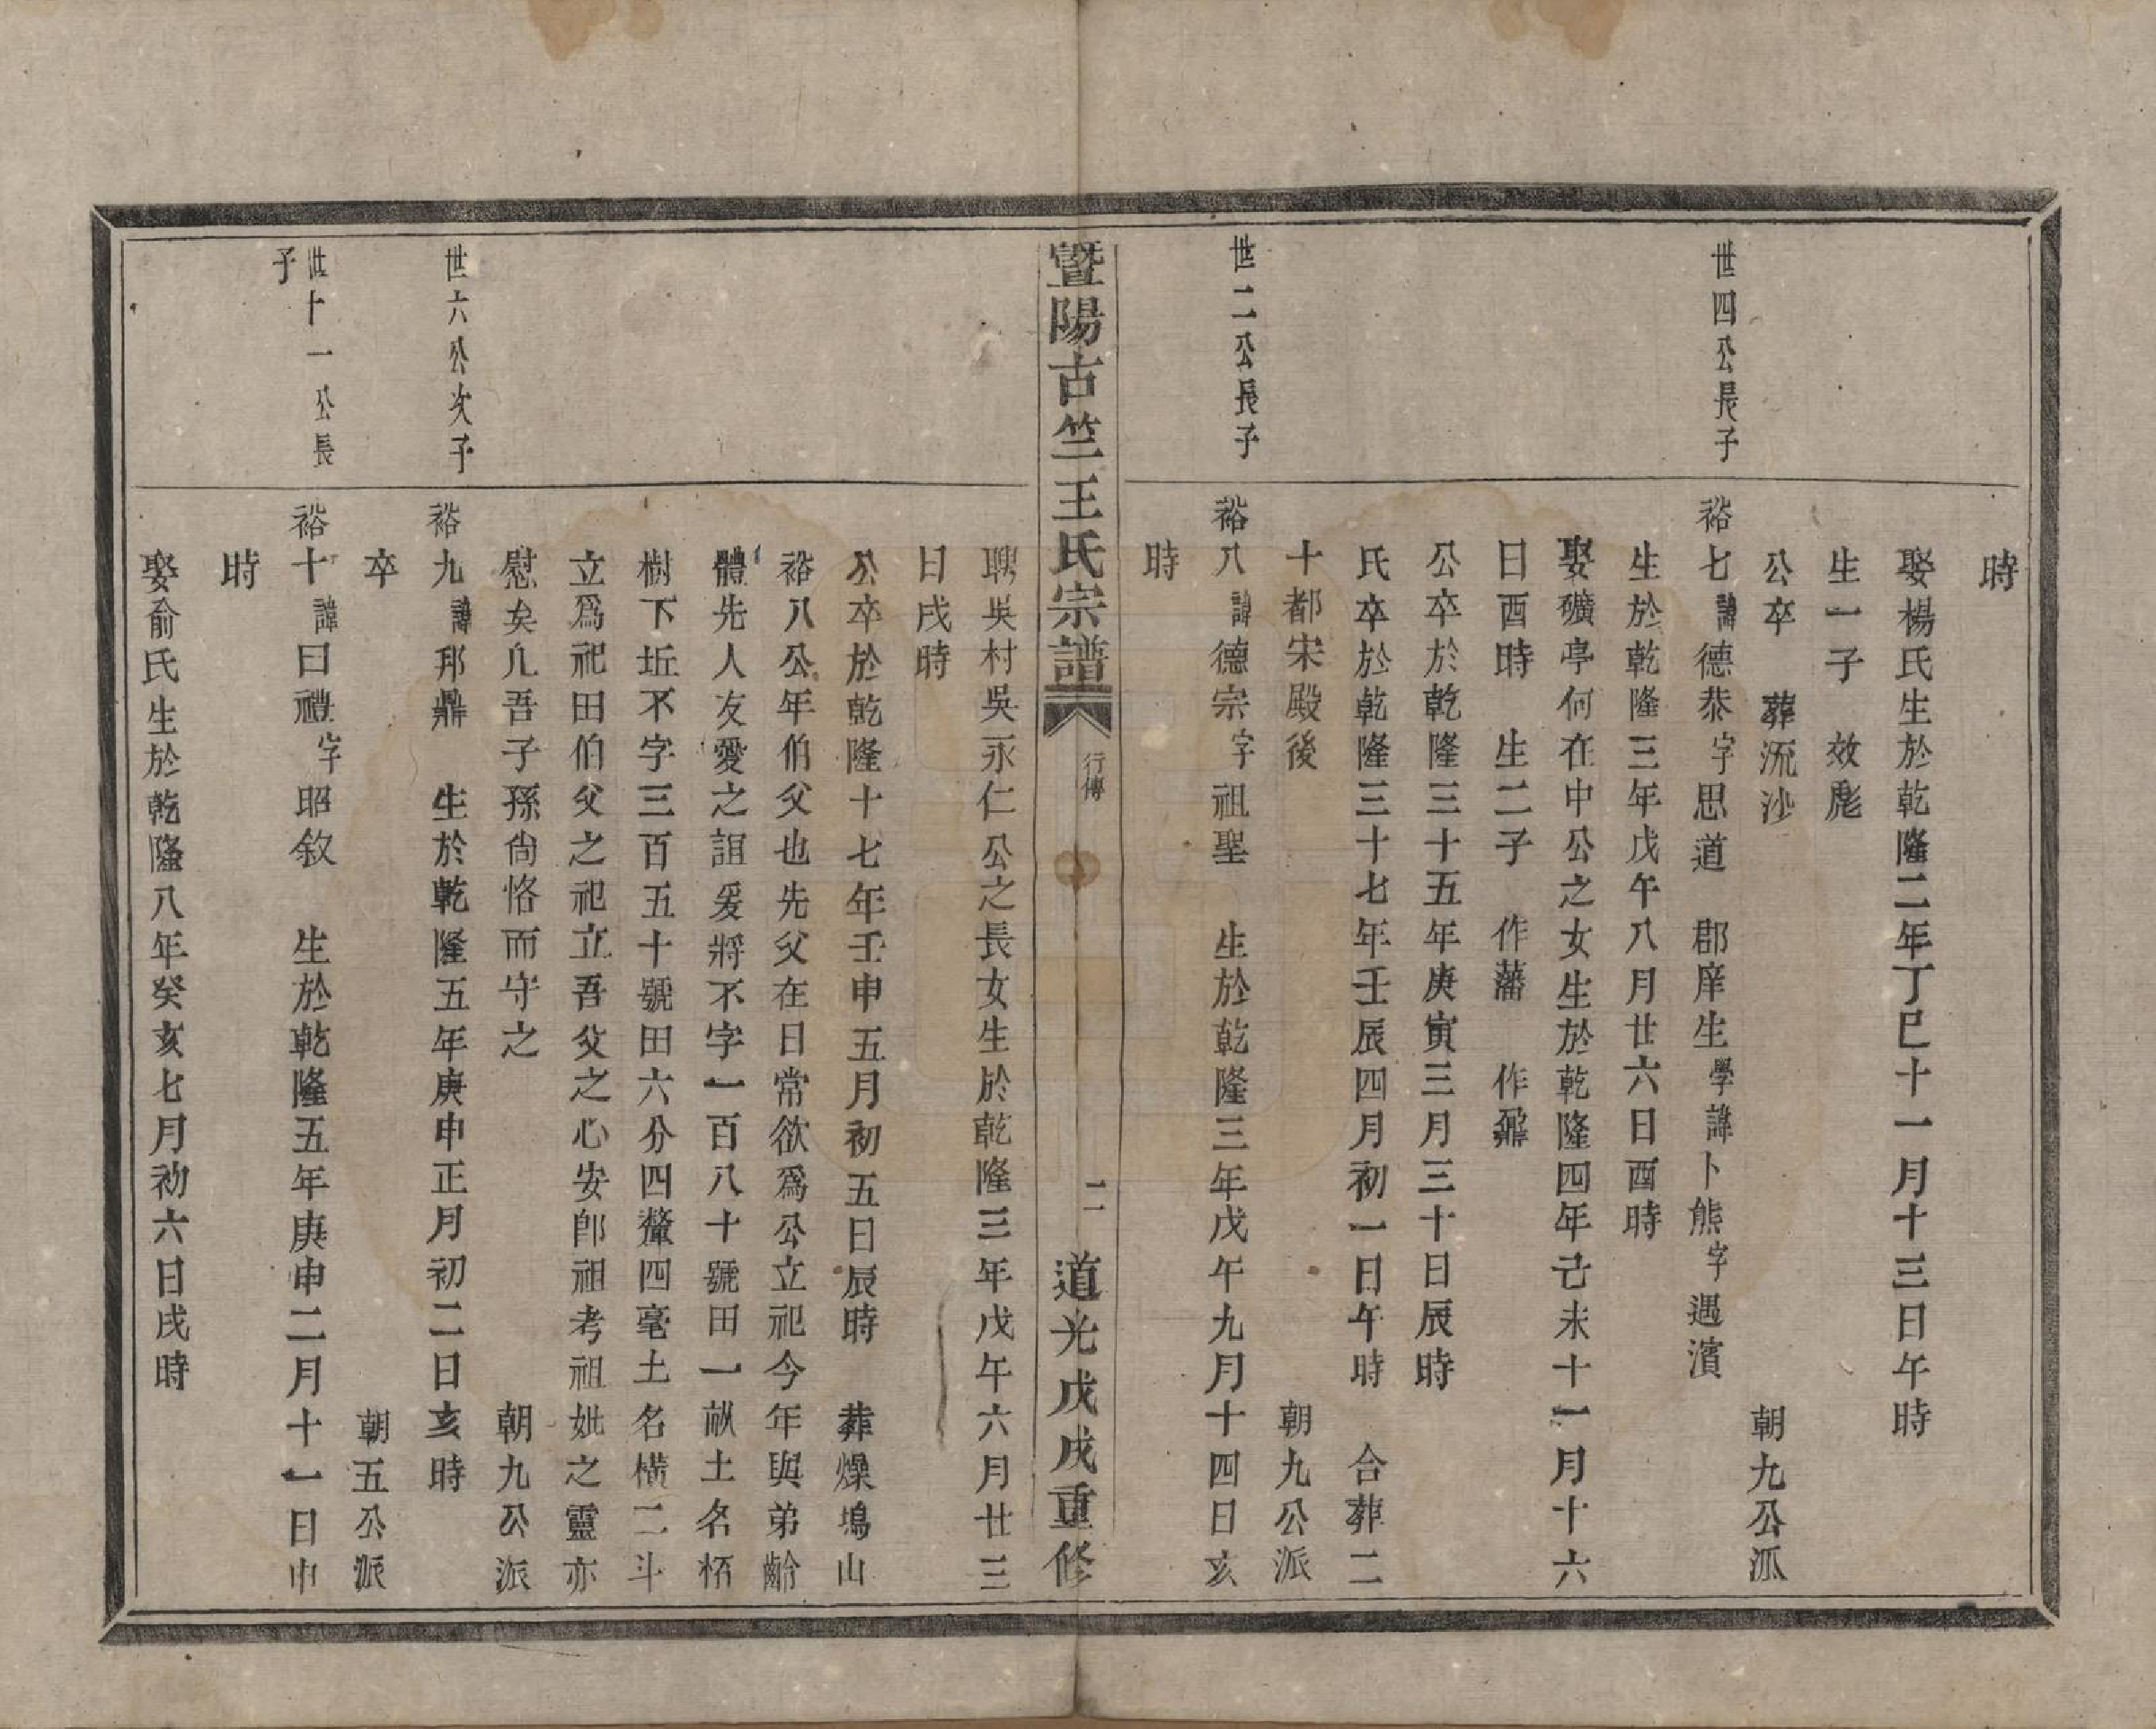 時
娶楊氏生於乾隆二年丁巳十一月十三日午時
生一子　效彪
公卒　葬流沙　朝九公派
世四公長子
裕七諱德恭字思道　郡庠生學諱卜熊字遇濱
生於乾隆三年戊午八月廿六日酉時
娶礦亭何在中公之女生於乾隆四年己未十一月十六
日酉時　生二子　作藩　作鼐
公卒於乾隆三十五年庚寅三月三十日辰時
氏卒於乾隆三十七年壬辰四月初一日午時　合葬二
十都宋殿後　朝九公派
世二公長子
裕八諱德宗字祖聖　生於乾隆三年戊午九月十四日亥
時
暨陽古竺王氏宗譜　行傳　二　道光戊戌重修
聘吳村吳永仁公之長女生於乾隆三年戊午六月廿三
日戌時
公卒於乾隆十七年壬申五月初五日辰時　葬燥塢山
裕八公年伯父也先父在日常欲爲公立祀今年與弟齡
體先人友愛之誼爰將不字一百八十號田一畝土名栢
樹下坵不字三百五十號田六分四釐四毫土名橫二斗
立爲祀田伯父之祀立吾父之心安卽祖考祖妣之靈亦
慰矣凡吾子孫尙恪而守之　朝九公派
世六公次子
裕九諱邦鼎　生於乾隆五年庚申正月初二日亥時
卒　朝五公派
世十一公長
子
裕十諱曰禮字昭敘　生於乾隆五年庚申二月十一日申
時
娶俞氏生於乾隆八年癸亥七月初六日戌時